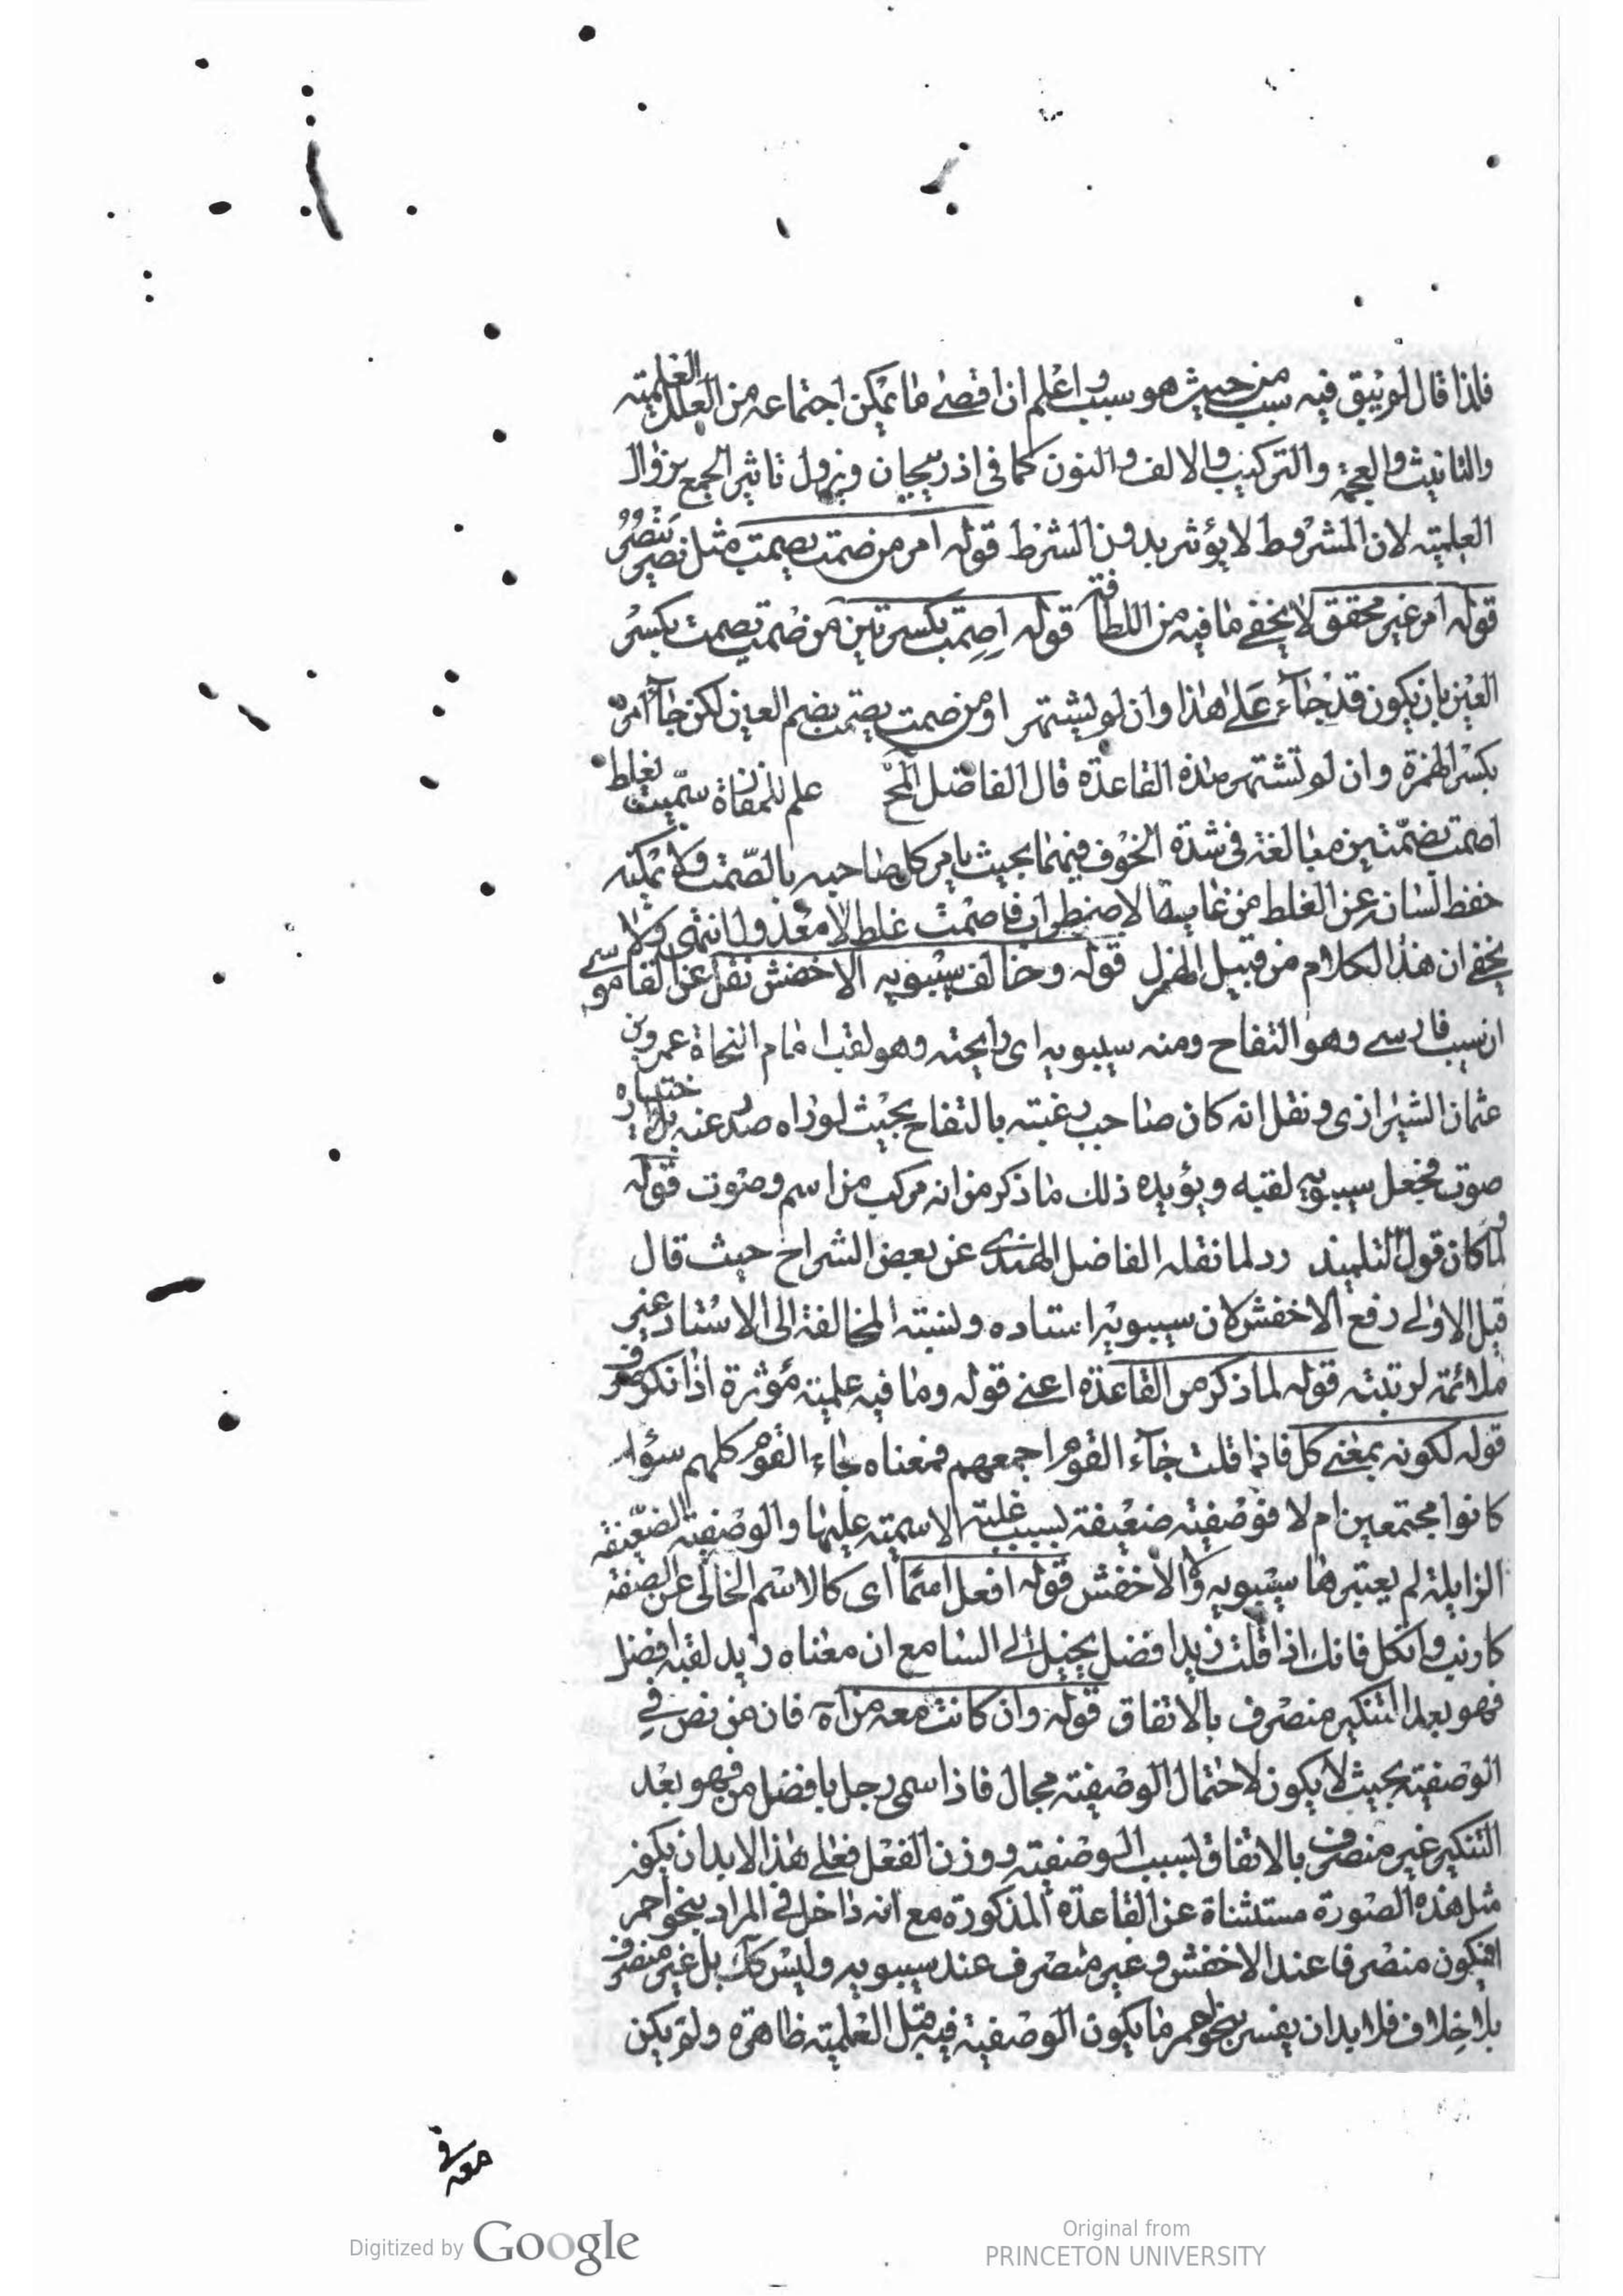 فلذا قال لم يبق فيه سبب من حيث هو سبب واعلم ان اقصى ما يمكن اجتماعه من العلل العلمية
والتانيث والعجمة والتركيب والالف والنون كما في اذربيجان ويزول تاثير الجمع بزوال
العلمية لان المشروط لا يؤثر بدون الشرط قوله امر من صمت يصمت مثل نصر ينصر
قوله امر غير محقق لا يخفى ما فيه من اللطافة قوله اصمت بكسرتين من صمت يصمت بكسر
العين بان يكون قد جاء على هذا وان لم يشتهر او من صمت يصمت بضم العين لكن جاء امره
بكسر الهمزة وان لم تشتهر هذه القاعدة قال الفاضل المح علم للمفازة سميت بغلط
اصمت بضمتين مبالغة في شدة الخوف فيهما بحيث يامر كل صاحبه بالصمت ولا يمكنه
حفظ لسانه عن الغلط من غاية الاضطراب فاصمت غلط الا معذولا انتهى ولا
يخفى ان هذا الكلام من قبيل الهزل قوله وخالف سيبويه الاخفش نقل عن القاموس
ان سيب فارسى وهو التفاح ومنه سيبويه اى رايحته وهو لقب امام النحاة عمرو بن
عثمان الشيرازى ونقل انه كان صاحب رغبته بالتفاح بحيث لو راه صدر عنه بلا اختياره
صوت فجعل سيبويه لقبه ويؤيده ذلك ما ذكر من انه مركب من اسم وصوت قوله
لما كان قول التلميذ رد لما نقله الفاضل الهندى عن بعض الشراح حيث قال
قيل الاولى رفع الاخفش لان سيبويه استاده ونسبته المخالفة الى الاستاد غير
ملائمة لرتبته قوله لما ذكر من القاعدة اعنى قوله وما فيه علمية مؤثرة اذا نكر صرف
قوله لكونه بمعنى كل فاذا قلت جاء القوم اجمعهم فمعناه جاء القوم كلهم سواء
كانوا مجتمعين ام لا فوصفيته ضعيفة بسبب غلبة الاسمية عليها والوصفية الضعيفة
الزايلة لم يعتبرها سيبويه والاخفش قوله افعل اسما اى كالاسم الخالى عن الصفة
كارنب وافكل فانك اذا قلت زيد افضل يخيل الى السامع ان معناه زيد لقبه افضل
فهو بعد التنكير منصرف بالاتفاق قوله وان كانت معه من اه فان من نص في
الوصفية بحيث لا يكون لاحتمال الوصفية مجال فاذا سمى رجل بافضل من فهو بعد
التنكير غير منصرف بالاتفاق بسبب الوصفية ووزن الفعل فعلى هذا لابد ان يكون
مثل هذه الصورة مستثناة عن القاعدة المذكورة مع انه داخل في المراد بنحو احمر
افيكون منصرفا عند الاخفش وغير منصرف عند سيبويه وليس كك بل غير منصرف
بلا خلاف فلا بد ان يفسر بنحو احمر ما يكون الوصفية فيه قبل العلمية ظاهرة ولم يكن
معه في
Digitized by Google
Original from
PRINCETON UNIVERSITY